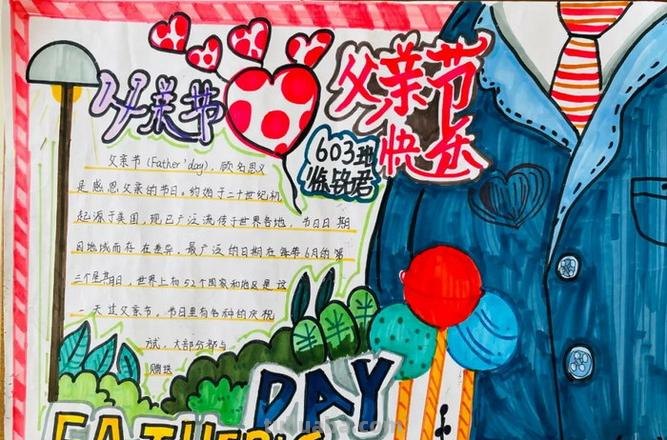 父亲节
父亲节
快乐
603班
父亲节(Father'day),顾名思义
是感恩父亲的节日,约始于二十世纪初
起源于美国,现已广泛流传于世界各地,节日日期
因地域而存在差异,最广泛的日期在每年6月的第
三个星期日,世界上和52个国家和地区是这
天过父亲节,节日里有各种的庆祝
方式,大部分都与
赠送
DAY
FATHER'S